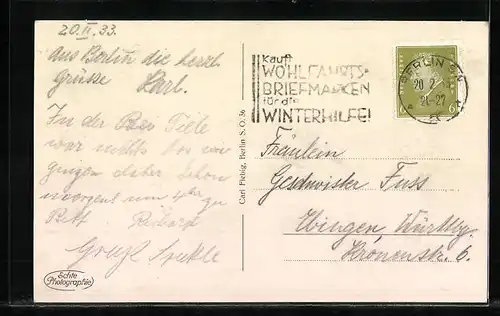 20.II.33.
Aus Berlin die herzl.
Grüsse Karl.
In der Bei Tiele
war nichts los wir
gingen daher schon
morgens um 4 Uhr zu
Bett. Richard
Echte
Photographie
Carl Fiebig, Berlin S.O. 36
Kauft
WOHLFAHRTS-
BRIEFMARKEN
für die
WINTERHILFE!
BERLIN SW
20. 2.
21-22
6
Fräulein
Geschwister Fuss
Ebingen, Württbg.
Kronenstr. 6.